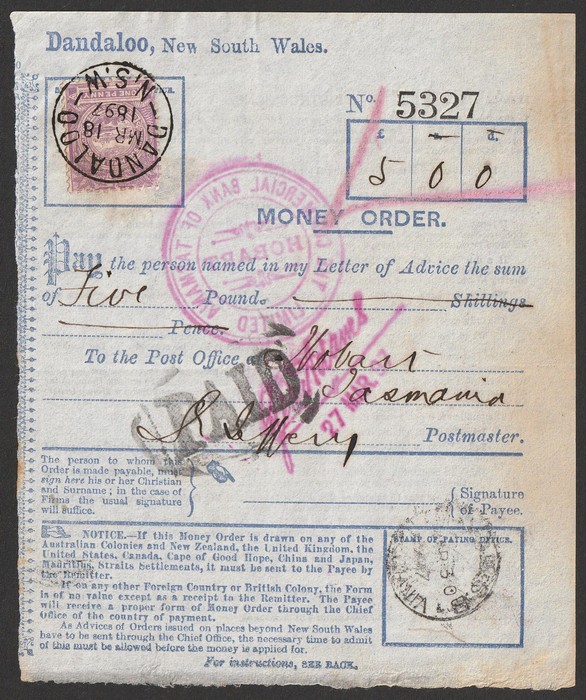 Dandaloo, New South Wales.
ONE PENNY
DANDALOO
N.S.W
MR 18
1897
No. 5327
£ s. d.
5 0 0
COMMERCIAL BANK OF TASMANIA LIMITED
HOBART
MONEY ORDER.
Pay the person named in my Letter of Advice the sum
of Five Pounds Shillings
Pence.
To the Post Office at Hobart
Tasmania
PAID
27 MAR
Postmaster.
The person to whom this
Order is made payable, must
sign here his or her Christian
and Surname; in the case of
Firms the usual signature
will suffice.
Signature
of Payee.
NOTICE.—If this Money Order is drawn on any of the
Australian Colonies and New Zealand, the United Kingdom, the
United States, Canada, Cape of Good Hope, China and Japan,
Mauritius, Straits Settlements, it must be sent to the Payee by
the Remitter.
If on any other Foreign Country or British Colony, the Form
is of no value except as a receipt to the Remitter. The Payee
will receive a proper form of Money Order through the Chief
Office of the country of payment.
As Advices of Orders issued on places beyond New South Wales
have to be sent through the Chief Office, the necessary time to admit
of this must be allowed before the money is applied for.
For instructions, SEE BACK.
STAMP OF PAYING OFFICE.